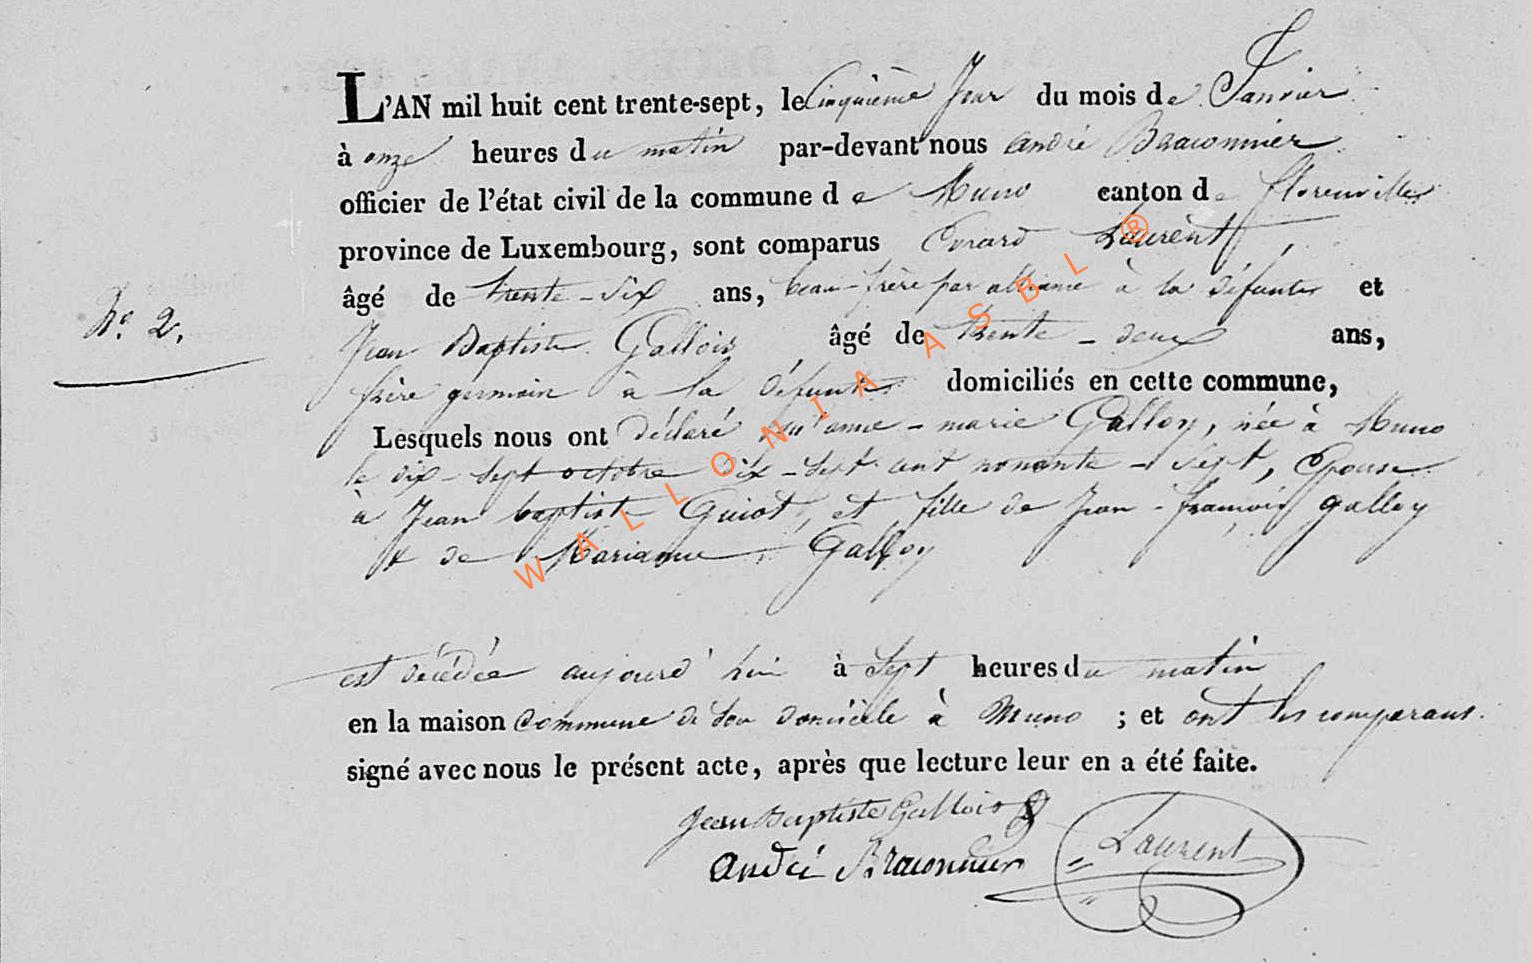 L'AN mil huit cent trente-sept, le Cinquième Jour du mois de Janvier
à onze heures du matin par-devant nous andré Braconnier
officier de l'état civil de la commune de Muno canton de florenville
province de Luxembourg, sont comparus Evrard Laurent,
âgé de trente-six ans, beau-frère par alliance à la défunte et
N.o 2.
Jean Baptiste Gallois, âgé de trente-deux ans,
frère germain à la défunte domiciliés en cette commune,
Lesquels nous ont déclaré qu'anne-marie Galloy, née à Muno
le dix-sept octobre dix-sept cent nonante-sept, Epouse
à Jean baptiste Guiot, et fille de Jean-françois galloy
& de Marianne Galloy
est décédée aujourd'hui à sept heures du matin
en la maison commune de son domicile à Muno ; et ont les comparans
signé avec nous le présent acte, après que lecture leur en a été faite.
Jean Baptiste Gallois
andré Braconnier Laurent
WALLONIA ASBL ®